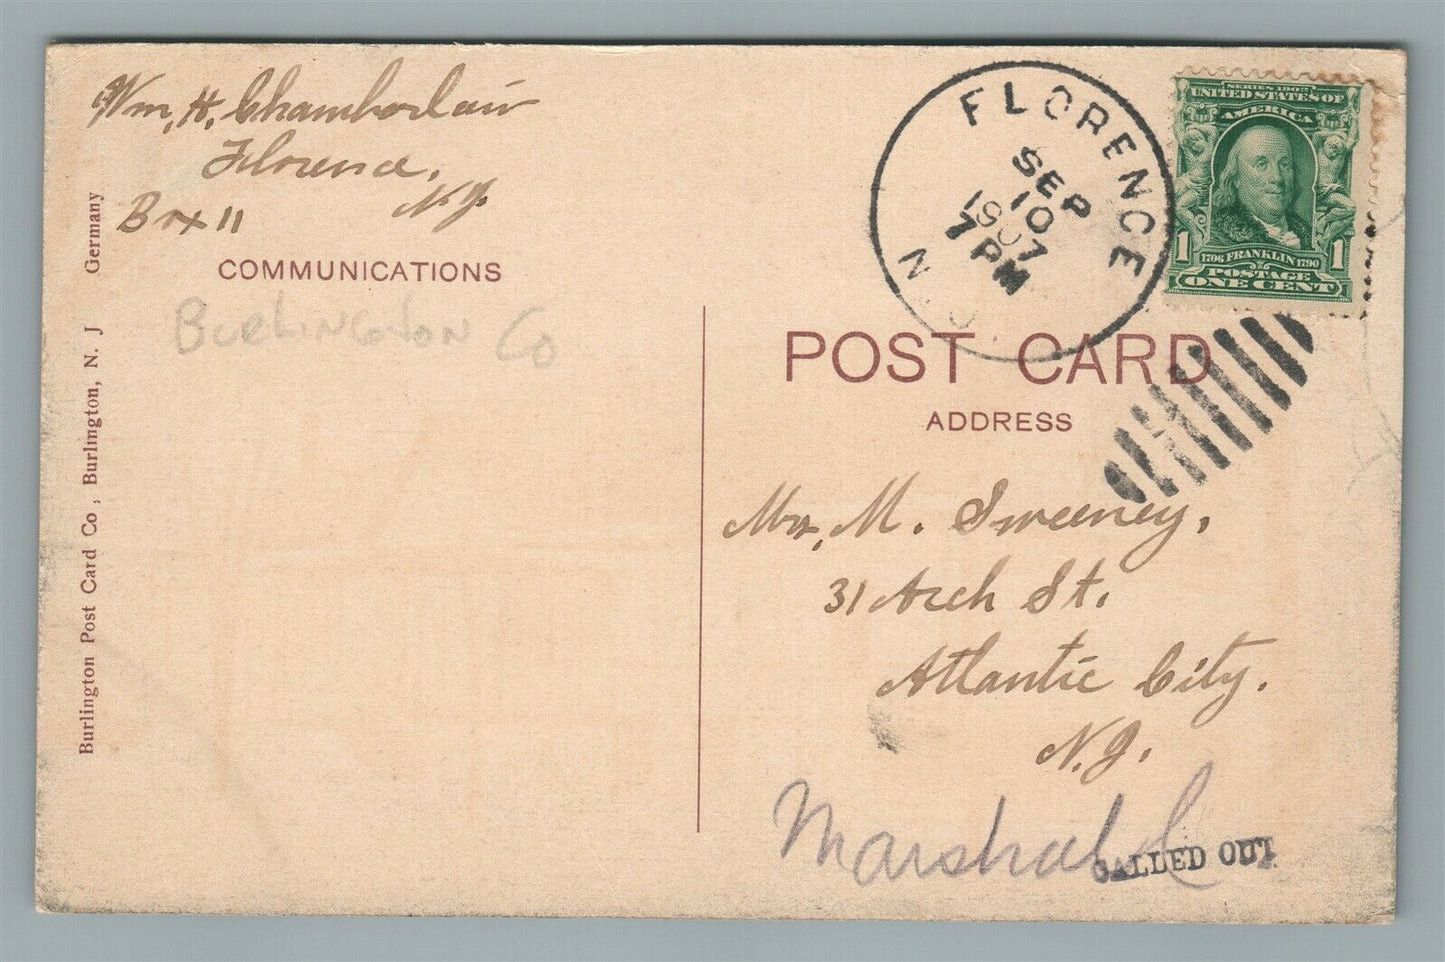 Wm, H, Chamberlain
Florence,
N.J.
Box 11
COMMUNICATIONS
Burlington Co
Burlington Post Card Co, Burlington, N. J Germany
FLORENCE
SEP
10
1907
7 PM
N.
SERIES 1902
UNITED STATES OF
AMERICA
1 1
1706 FRANKLIN 1790
POSTAGE
ONE CENT
POST CARD
ADDRESS
Mr, M. Sweeney,
31 Arch St.
Atlantic City.
N.J.
Marshal
CALLED OUT